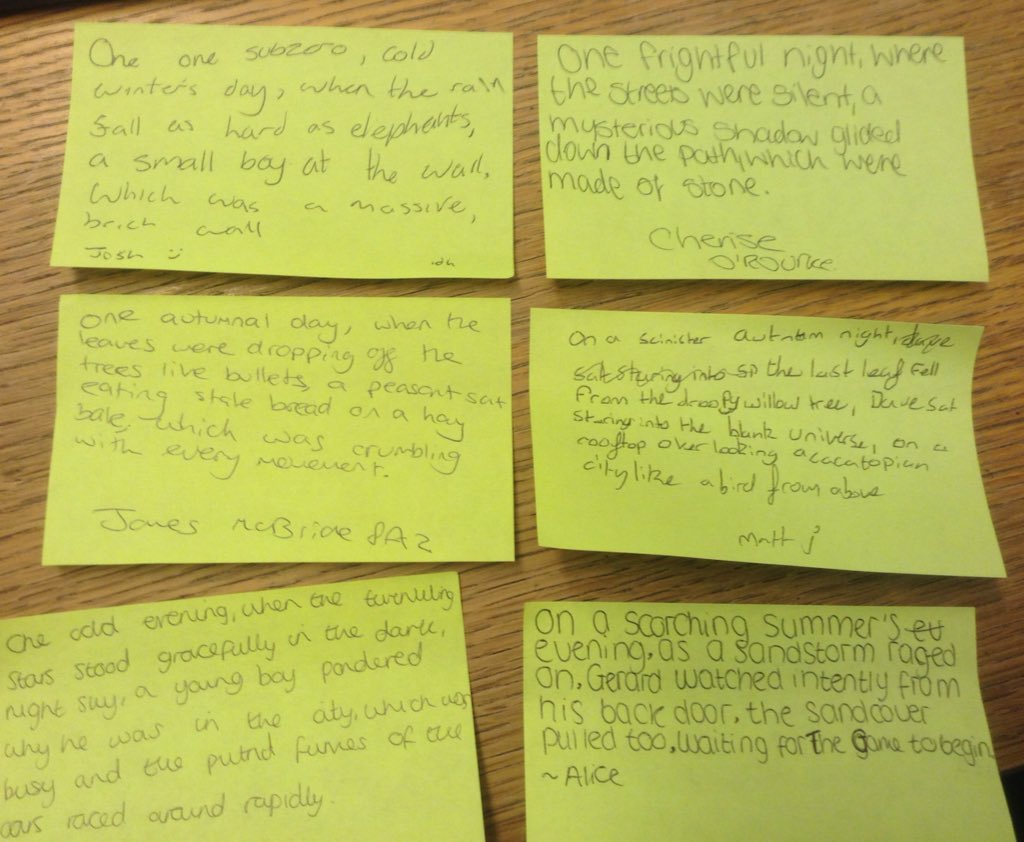 One one subzero, cold
winter's day, when the rain
fall as hard as elephants,
a small boy at the wall,
which was a massive,
brick wall
Josh :)
One frightful night, where
the streets were silent, a
mysterious shadow glided
down the path, which were
made of stone.
Cherise
O'Rourke.
One autumnal day, when the
leaves were dropping off the
trees like bullets, a peasant sat
eating stale bread on a hay
bale, which was crumbling
with every movement.
James McBride 8A2
On a scinister autntom night,
sat sturing into sp the last leaf fell
from the droopy willow tree, Dave sat
sturing into the blank universe, on a
rooftop over looking a cacatopian
city like a bird from above
Matt j
One cold evening, when the twinkling
stars stood gracefully in the dark,
night sky, a young boy pondered
why he was in the city, which was
busy and the putrid fumes of the
cars raced around rapidly.
On a scorching summer's ev
evening, as a sandstorm raged
on, Gerard watched intently from
his back door, the sandcover
pulled too, waiting for The Game to begin
~Alice